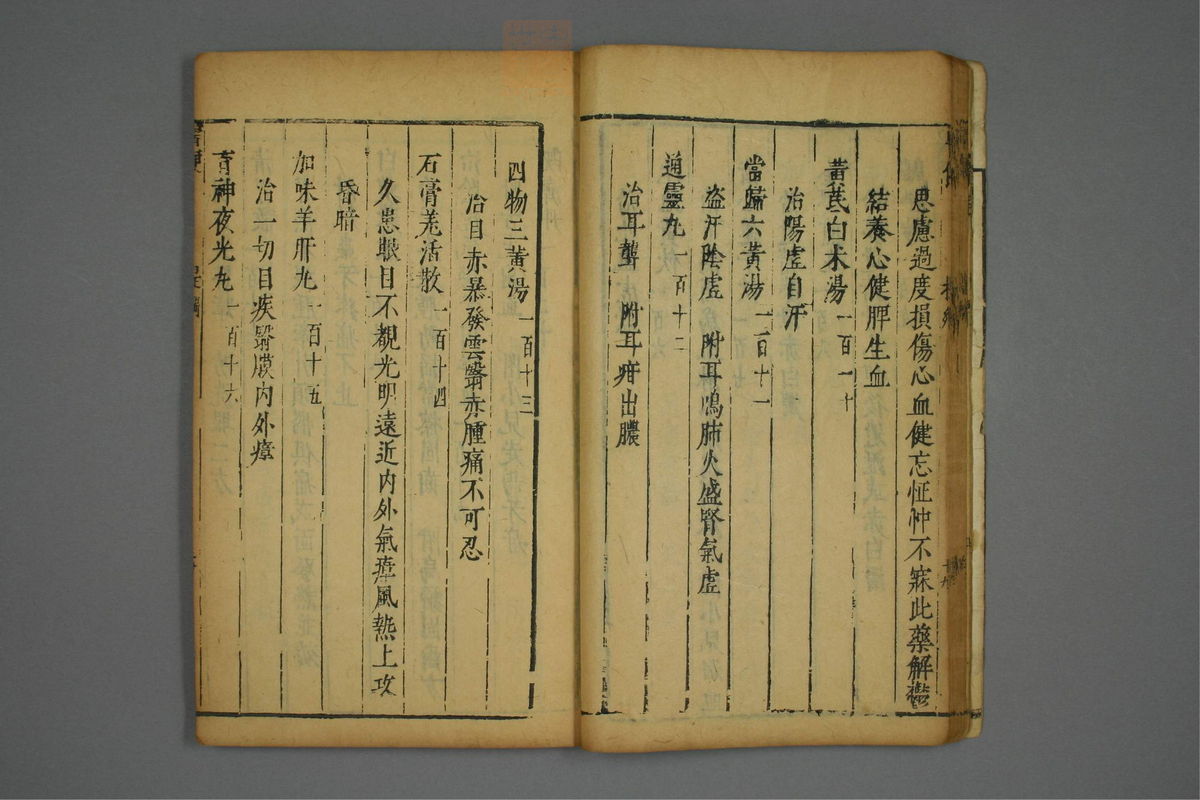 思慮過度損傷心血健忘怔忡不寐此藥解鬱
結養心健脾生血
黃芪白术湯 一百一十
治陽虛自汗
當歸六黃湯 一百十一
盜汗陰虛 附耳鳴肺火盛腎氣虛
通靈丸 一百十二
治耳聾 附耳疳出膿
四物三黃湯 一百十三
治目赤暴發雲翳赤腫痛不可忍
石膏羌活散 一百十四
久患眼目不覩光明遠近內外氣瘴風熱上攻
昏暗
加味羊肝丸 一百十五
治一切目疾翳膜內外瘴
育神夜光丸 一百十六